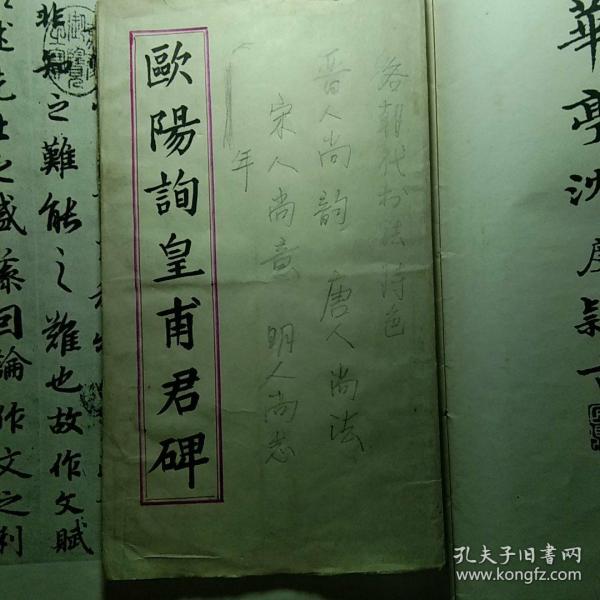 華亭沈度
各朝代书法特色
晋人尚韵 唐人尚法
宋人尚意 明人尚志
年
歐陽詢皇甫君碑
非知之難能之難也故作文賦
述先士之盛藻因論作文之利
孔夫子旧书网
www.kongfz.com